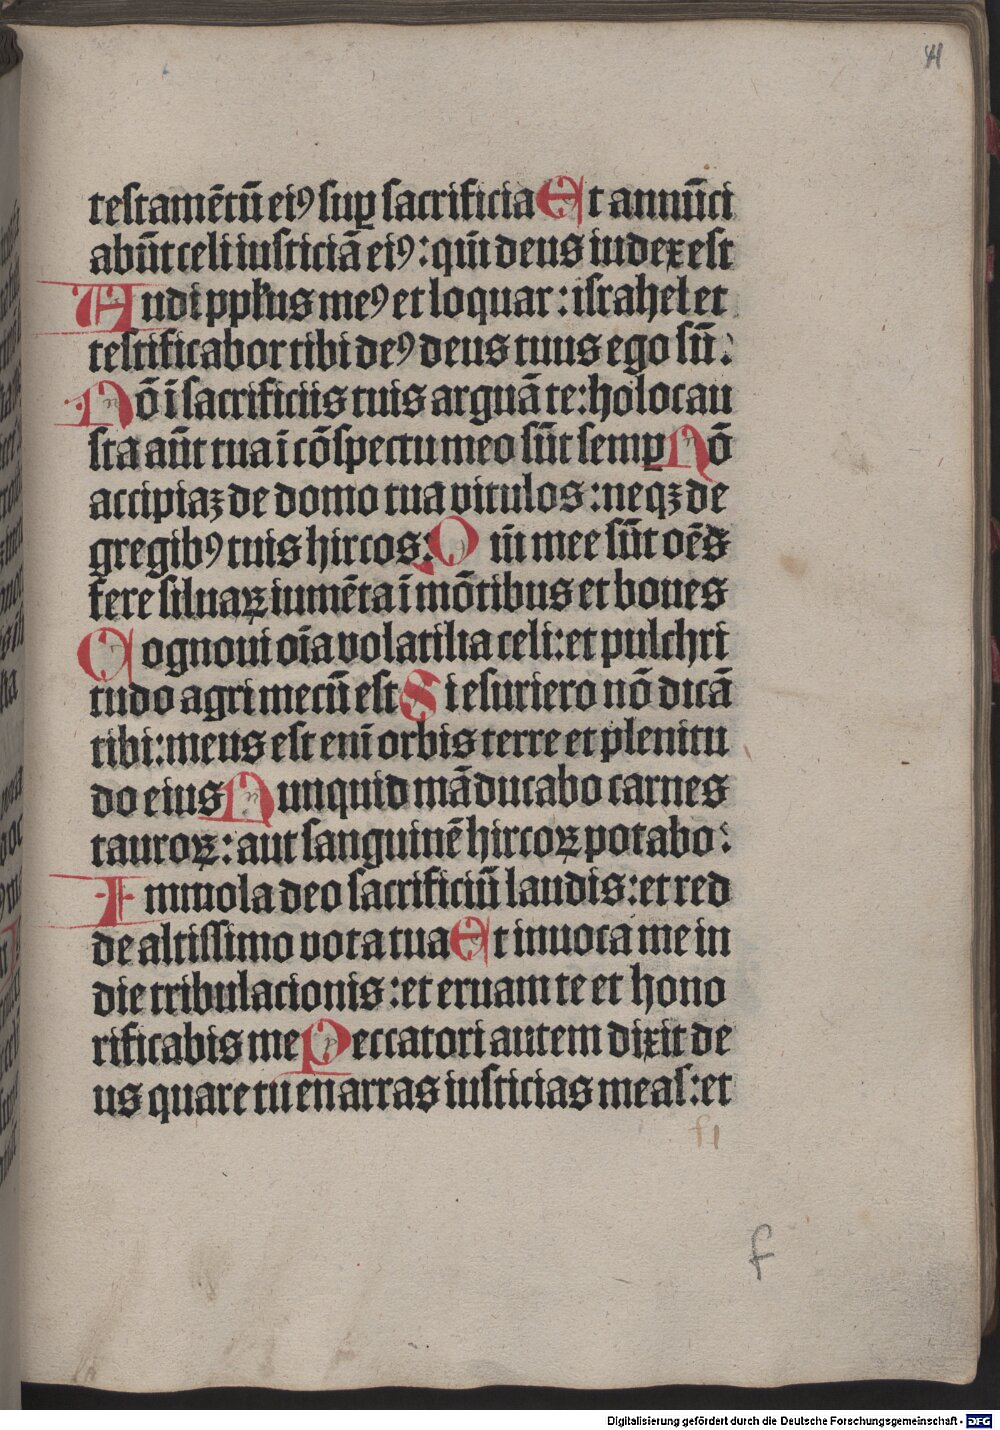 41
testamētū eiꝰ suꝑ sacrificia Et annūci
abūt celi iusticiā eiꝰ: qm̄ deus iudex est
Audi ppl̄us meꝰ et loquar: israhel et
testificabor tibi deꝰ deus tuus ego sū:
Nō ī sacrificiis tuis arguā te: holocau
sta aūt tua ī cōspectu meo sūt semꝑ Nō
accipiaꝫ de domo tua vitulos: neqꝫ de
gregibꝰ tuis hircos: Qm̄ mee sūt oēs
fere siluaꝝ iumēta ī mōtibus et boues
Cognoui oīa volatilia celi: et pulchri
tudo agri mecū est Si esuriero nō dicā
tibi: meus est enī orbis terre et plenitu
do eius Nunquid māducabo carnes
tauroꝝ: aut sanguinē hircoꝝ potabo:
Immola deo sacrificiū laudis: et red
de altissimo vota tua Et inuoca me in
die tribulacionis: et eruam te et hono
rificabis me Peccatori autem dixit de
us quare tu enarras iusticias meas: et
f1
f
Digitalisierung gefördert durch die Deutsche Forschungsgemeinschaft - DFG